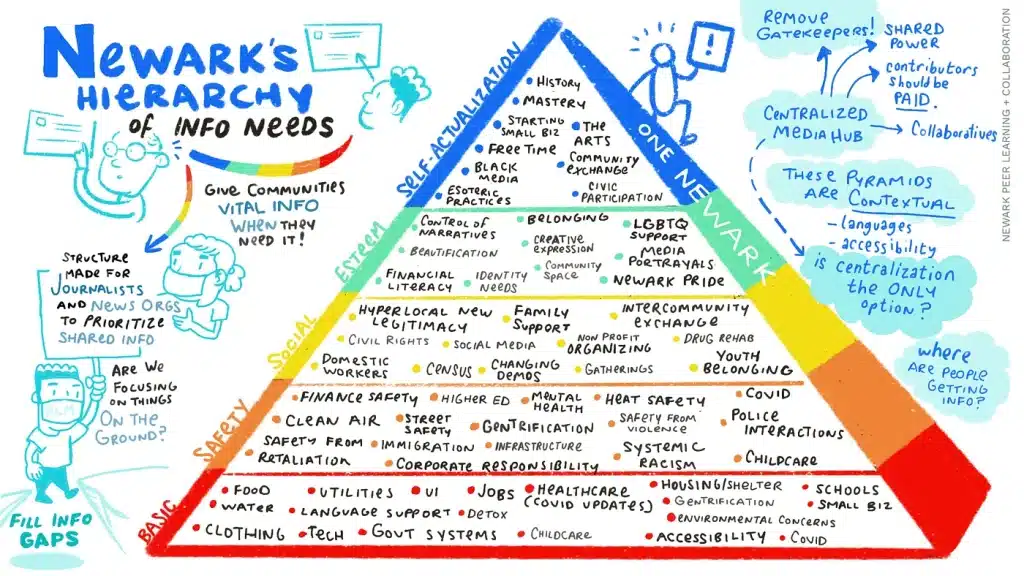 NEWARK'S
HIERARCHY
OF INFO NEEDS
GIVE COMMUNITIES
VITAL INFO
WHEN THEY
NEED IT!
STRUCTURE
MADE FOR
JOURNALISTS
AND NEWS ORGS
TO PRIORITIZE
SHARED INFO
ARE WE
FOCUSING
ON THINGS
ON THE
GROUND?
FILL INFO
GAPS
SELF-ACTUALIZATION
HISTORY
MASTERY
STARTING
SMALL BIZ
THE
ARTS
FREE TIME
COMMUNITY
EXCHANGE
BLACK
MEDIA
CIVIC
PARTICIPATION
ESOTERIC
PRACTICES
ONE NEWARK
!
ESTEEM
CONTROL OF
NARRATIVES
BELONGING
LGBTQ
SUPPORT
BEAUTIFICATION
CREATIVE
EXPRESSION
MEDIA
PORTRAYALS
FINANCIAL
LITERACY
IDENTITY
NEEDS
COMMUNITY
SPACE
NEWARK PRIDE
SOCIAL
HYPERLOCAL NEW
LEGITIMACY
FAMILY
SUPPORT
INTERCOMMUNITY
EXCHANGE
CIVIL RIGHTS
SOCIAL MEDIA
NON PROFIT
ORGANIZING
DRUG REHAB
DOMESTIC
WORKERS
CENSUS
CHANGING
DEMOS
GATHERINGS
YOUTH
BELONGING
SAFETY
FINANCE SAFETY
HIGHER ED
MENTAL
HEALTH
HEAT SAFETY
COVID
CLEAN AIR
STREET
SAFETY
GENTRIFICATION
SAFETY FROM
VIOLENCE
POLICE
INTERACTIONS
SAFETY FROM
RETALIATION
IMMIGRATION
INFRASTRUCTURE
SYSTEMIC
RACISM
CHILDCARE
CORPORATE RESPONSIBILITY
BASIC
FOOD
UTILITIES
UI
JOBS
HEALTHCARE
(COVID UPDATES)
HOUSING/SHELTER
SCHOOLS
WATER
LANGUAGE SUPPORT
DETOX
GENTRIFICATION
SMALL BIZ
ENVIRONMENTAL CONCERNS
CLOTHING
TECH
GOVT SYSTEMS
CHILDCARE
ACCESSIBILITY
COVID
REMOVE
GATEKEEPERS!
SHARED
POWER
contributors
should be
PAID.
CENTRALIZED
MEDIA HUB
Collaboratives
THESE PYRAMIDS
ARE CONTEXTUAL
- languages
- accessibility
is centralization
the ONLY
option?
where
ARE PEOPLE
GETTING
INFO?
NEWARK PEER LEARNING + COLLABORATION